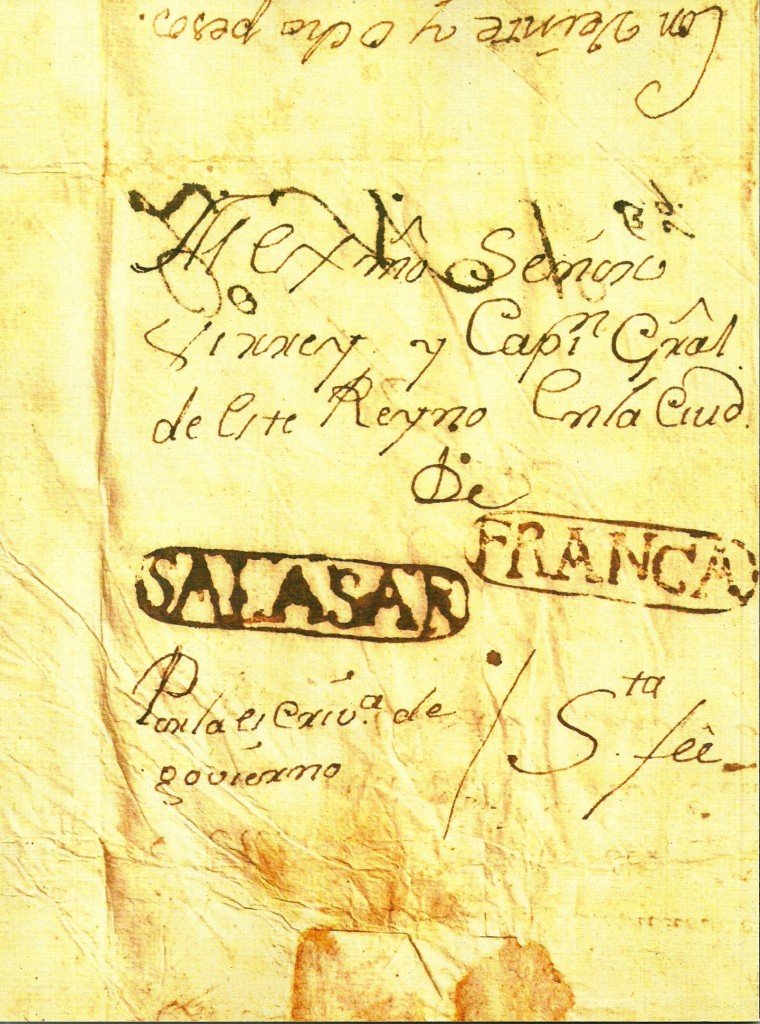 Con Veinte y Ocho pesos.
Al Exmô Senõr
Virrey y Capn Grâl.
de este Reyno En la Ciud.
De
FRANCA
SALASAR
Por la escriva. de
govierno
Sta. feê